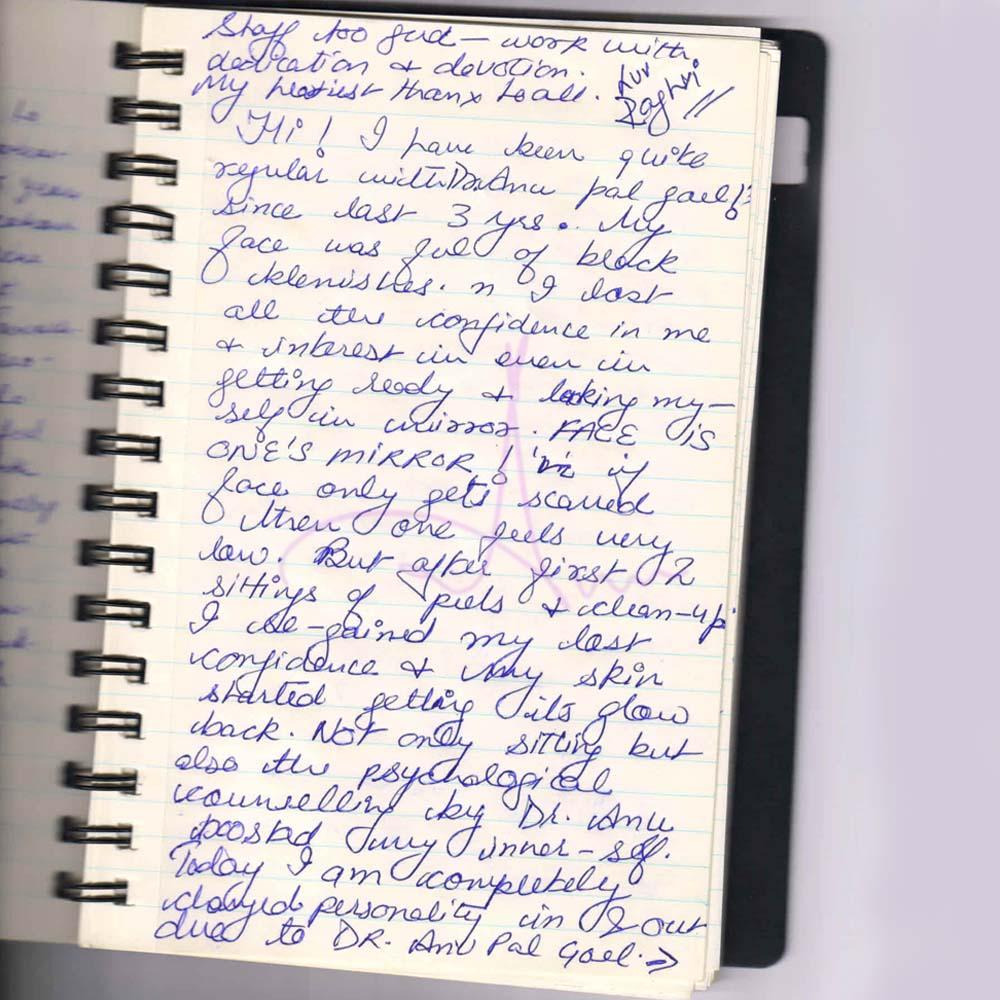 Staff too gud – work with
dedication & devotion.
My heartiest thanx to all.
Hi! I have been quite
regular with Dr Anu pal gael
since last 3 yrs. My
face was ful of black
blemishes. n I lost
all the confidence in me
& interest in even in
getting ready & looking my–
self in mirror. FACE IS
ONE'S MIRROR! if
face only gets scarred
then one feels very
low. But after first 2
sittings of peels & clean-up
I re-gained my lost
confidence & my skin
started getting its glow
back. Not only sitting but
also the psychological
counselling by Dr. Anu
boosted my inner-self.
Today I am completely
personality in & out
due to DR. Anu Pal Gael. →